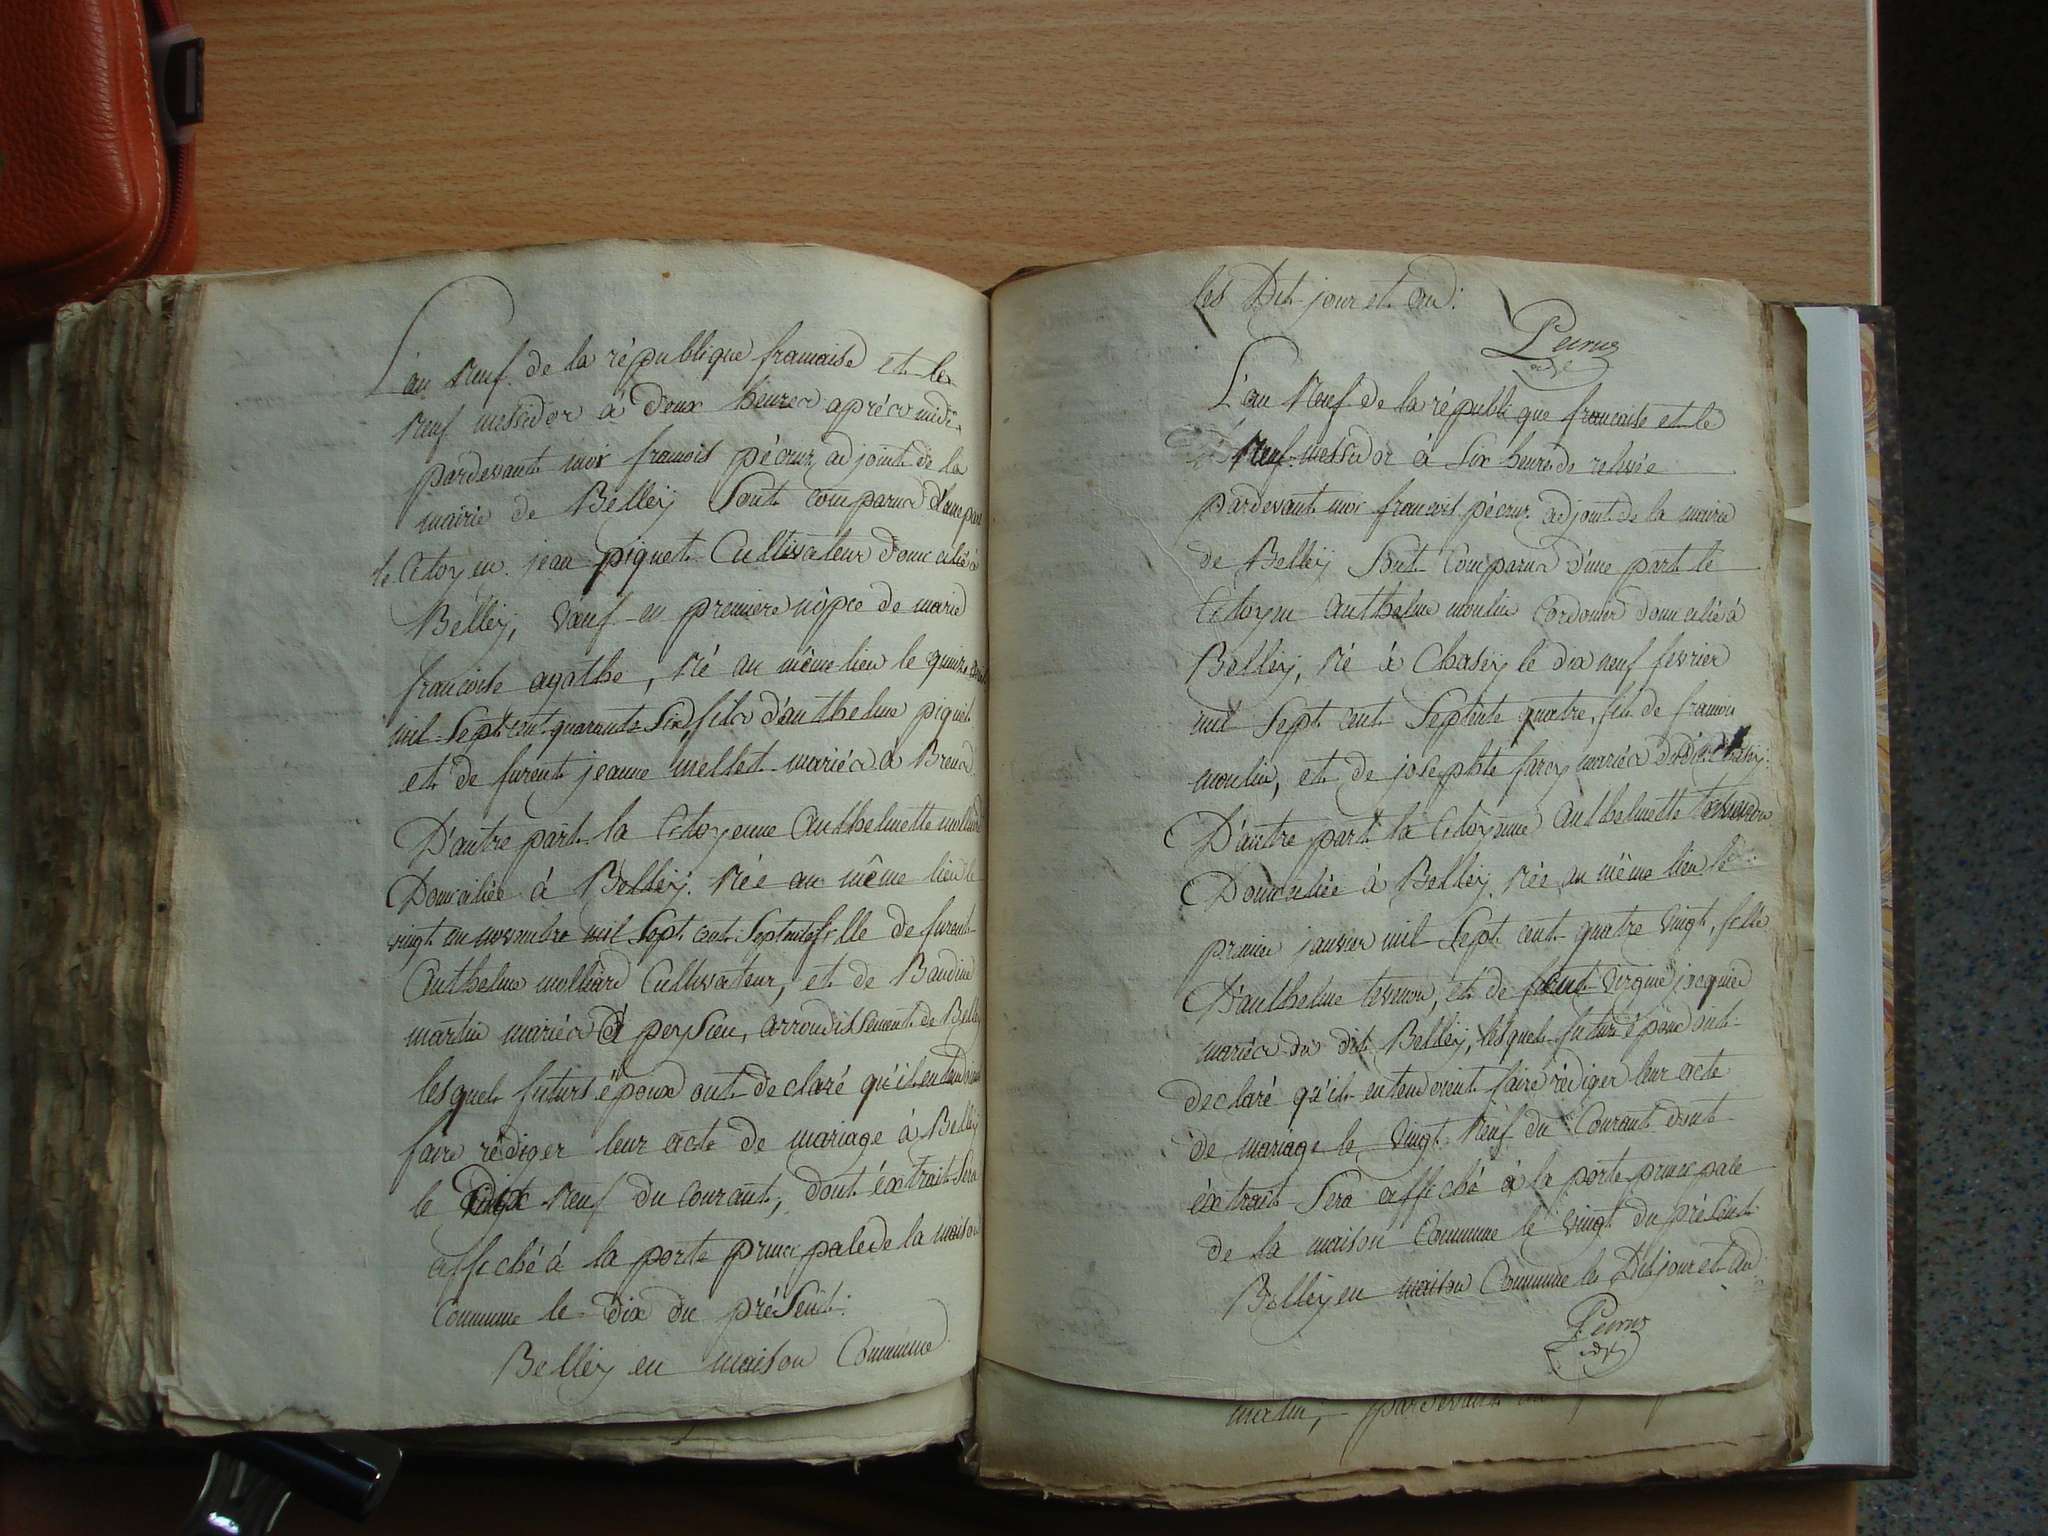 L'an Neuf de la république francaise et le
Neuf messidor à deux heures après midi
pardevant moi francois pécrux adjoint de la
mairie de Belleÿ Sont comparus d'une part
le Citoyen jean piquet Cultivateur domicilié à
Belleÿ, Vœuf en premiere nôpce de marie
francoise agathe, Né au même lieu le quinze
mil Sept cent quarante Six, fils d'anthelme piquet
et de furent jeanne mellet mariés à Brens
D'autre part la Citoyenne Anthelmette molliard
Domiciliée à Belleÿ. Née au même lieu le
vingt un novembre mil Sept cent Septente, fille de furent
Anthelme molliard Cultivateur, et de Baudine
martin mariés à peysieu, arrondissement de Belleÿ
lesquels futurs époux ont declaré qu'il entendoient
faire rédiger leur acte de mariage à Belleÿ
le Dix Neuf du courant, dont éxtrait Sera
affiché à la porte principale de la maison
Commune le dix du préSent.
Belleÿ en maison Commune
les Dit jour et an.
Pecrux
adj
L'an Neuf de la république francaise et le
Neuf messidor à Six heures de relevée
pardevant moi francois pécrux adjoint de la mairie
de Belleÿ Sont Comparus d'une part le
Citoyen anthelme moulin Cordonier domicilié à
Belleÿ, Né à Chaseÿ le dix neuf fevrier
mil Sept cent Septente quatre, fils de francois
moulin, et de josephte farcy mariés audit Chaseÿ.
D'autre part la Citoyenne anthelmette tevenon
Domiciliée à Belleÿ Née au même lieu le
premier janvier mil Sept cent quatre vingt, fille
D'anthelme tevenon, et de furent Virginie jacquier
mariés du dit Belleÿ, lesquels futurs époux ont
declaré qu'il entendoient faire rédiger leur acte
de mariage le Vingt Neuf du Courant dont
éxtrait Sera affiché à la porte principale
de la maison Commune le vingt du préSent
Belleÿ en maison Commune les Dit jour et an
Pecrux
adj
matin, pardevant